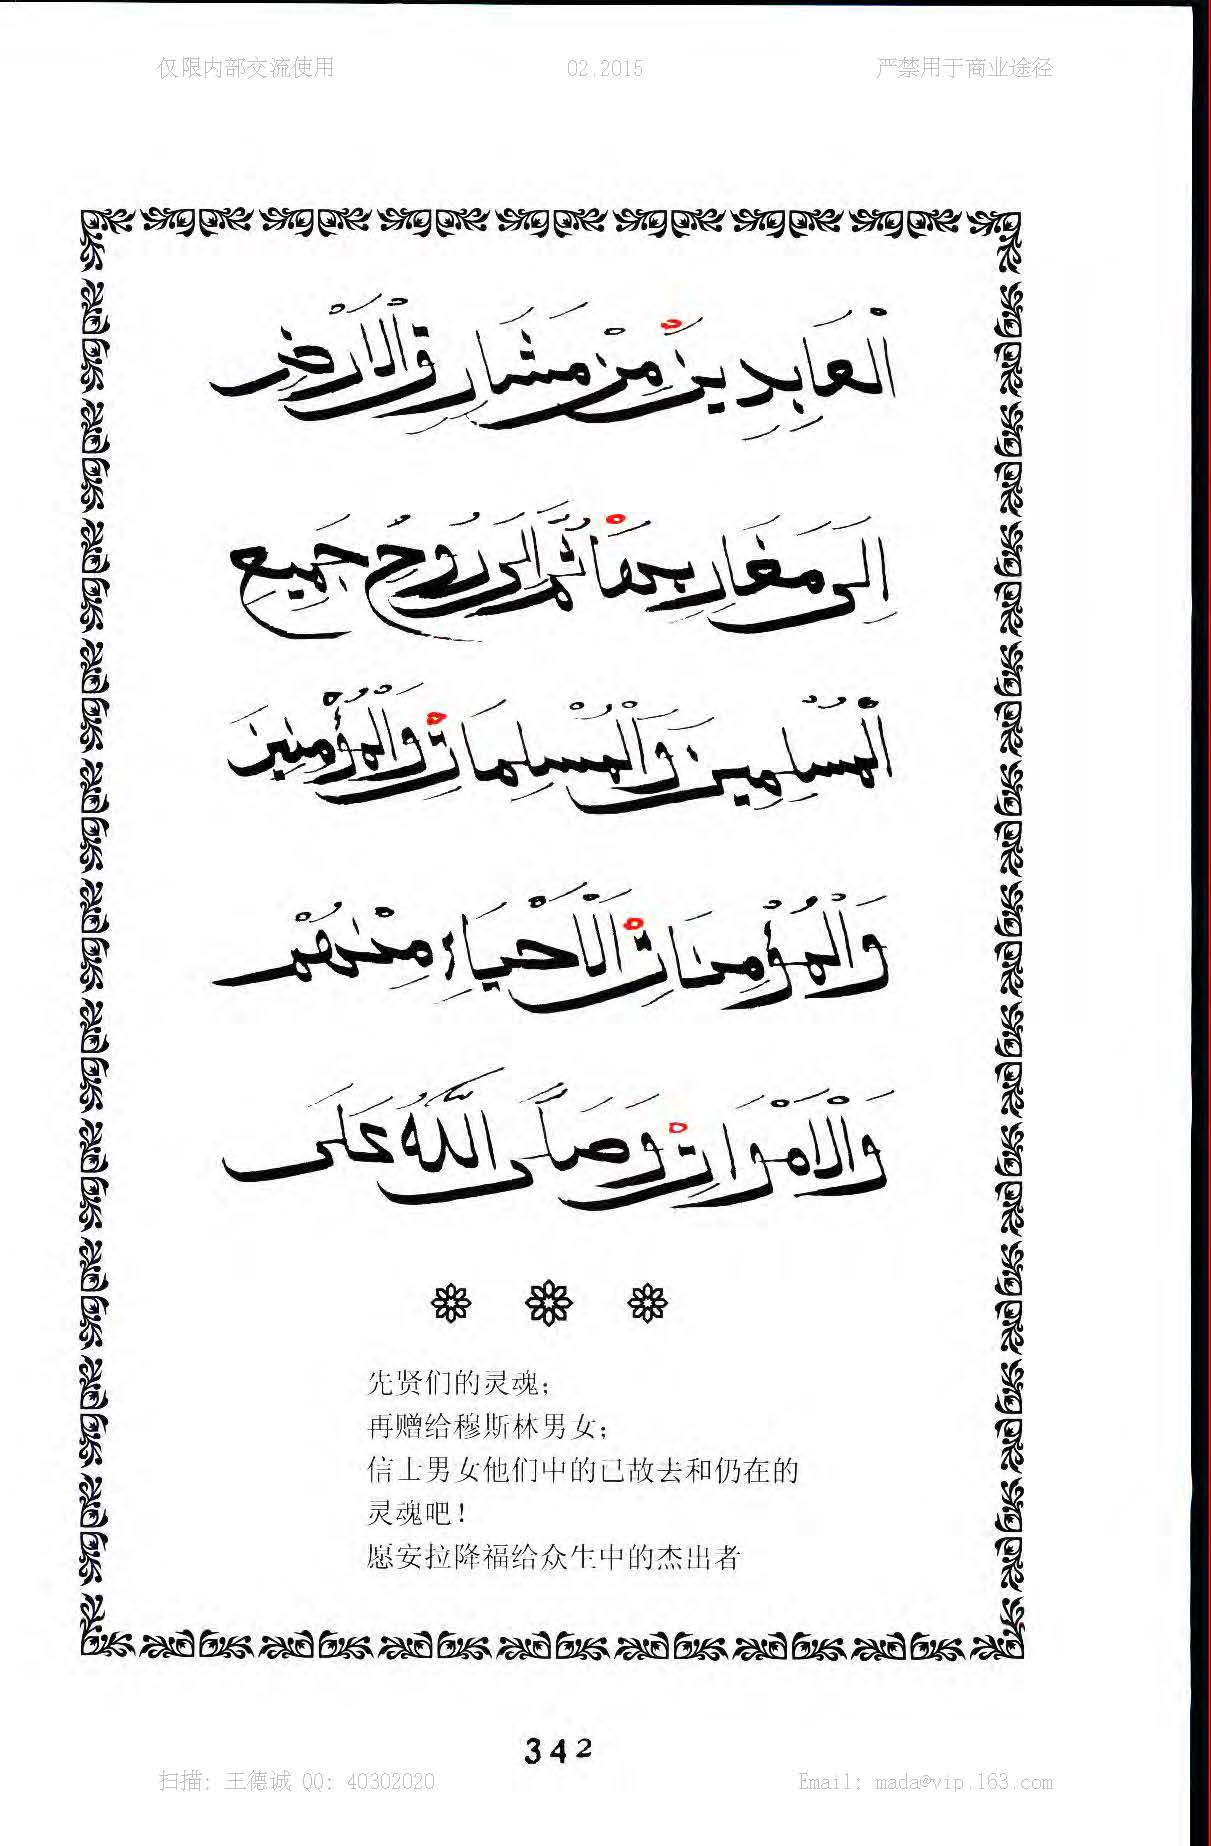 仅限内部交流使用 02.2015 严禁用于商业途径
اَلْعَابِدِينَ مِنْ مَشَارِقِ الْاَرْضِ
اِلَى مَغَارِبِهَا ثُمَّ اِلَى رُوحِ جَمِيعِ
اَلْمُسْلِمِينَ وَالْمُسْلِمَاتِ وَالْمُؤْمِنِينَ
وَالْمُؤْمِنَاتِ الْاَحْيَاءِ مِنْهُمْ
وَالْاَمْوَاتِ وَصَلَّى اللَّهُ عَلَى
先贤们的灵魂；
再赠给穆斯林男女；
信士男女他们中的已故去和仍在的
灵魂吧！
愿安拉降福给众生中的杰出者
342
扫描: 王德诚 QQ: 40302020 Email: mada@vip.163.com